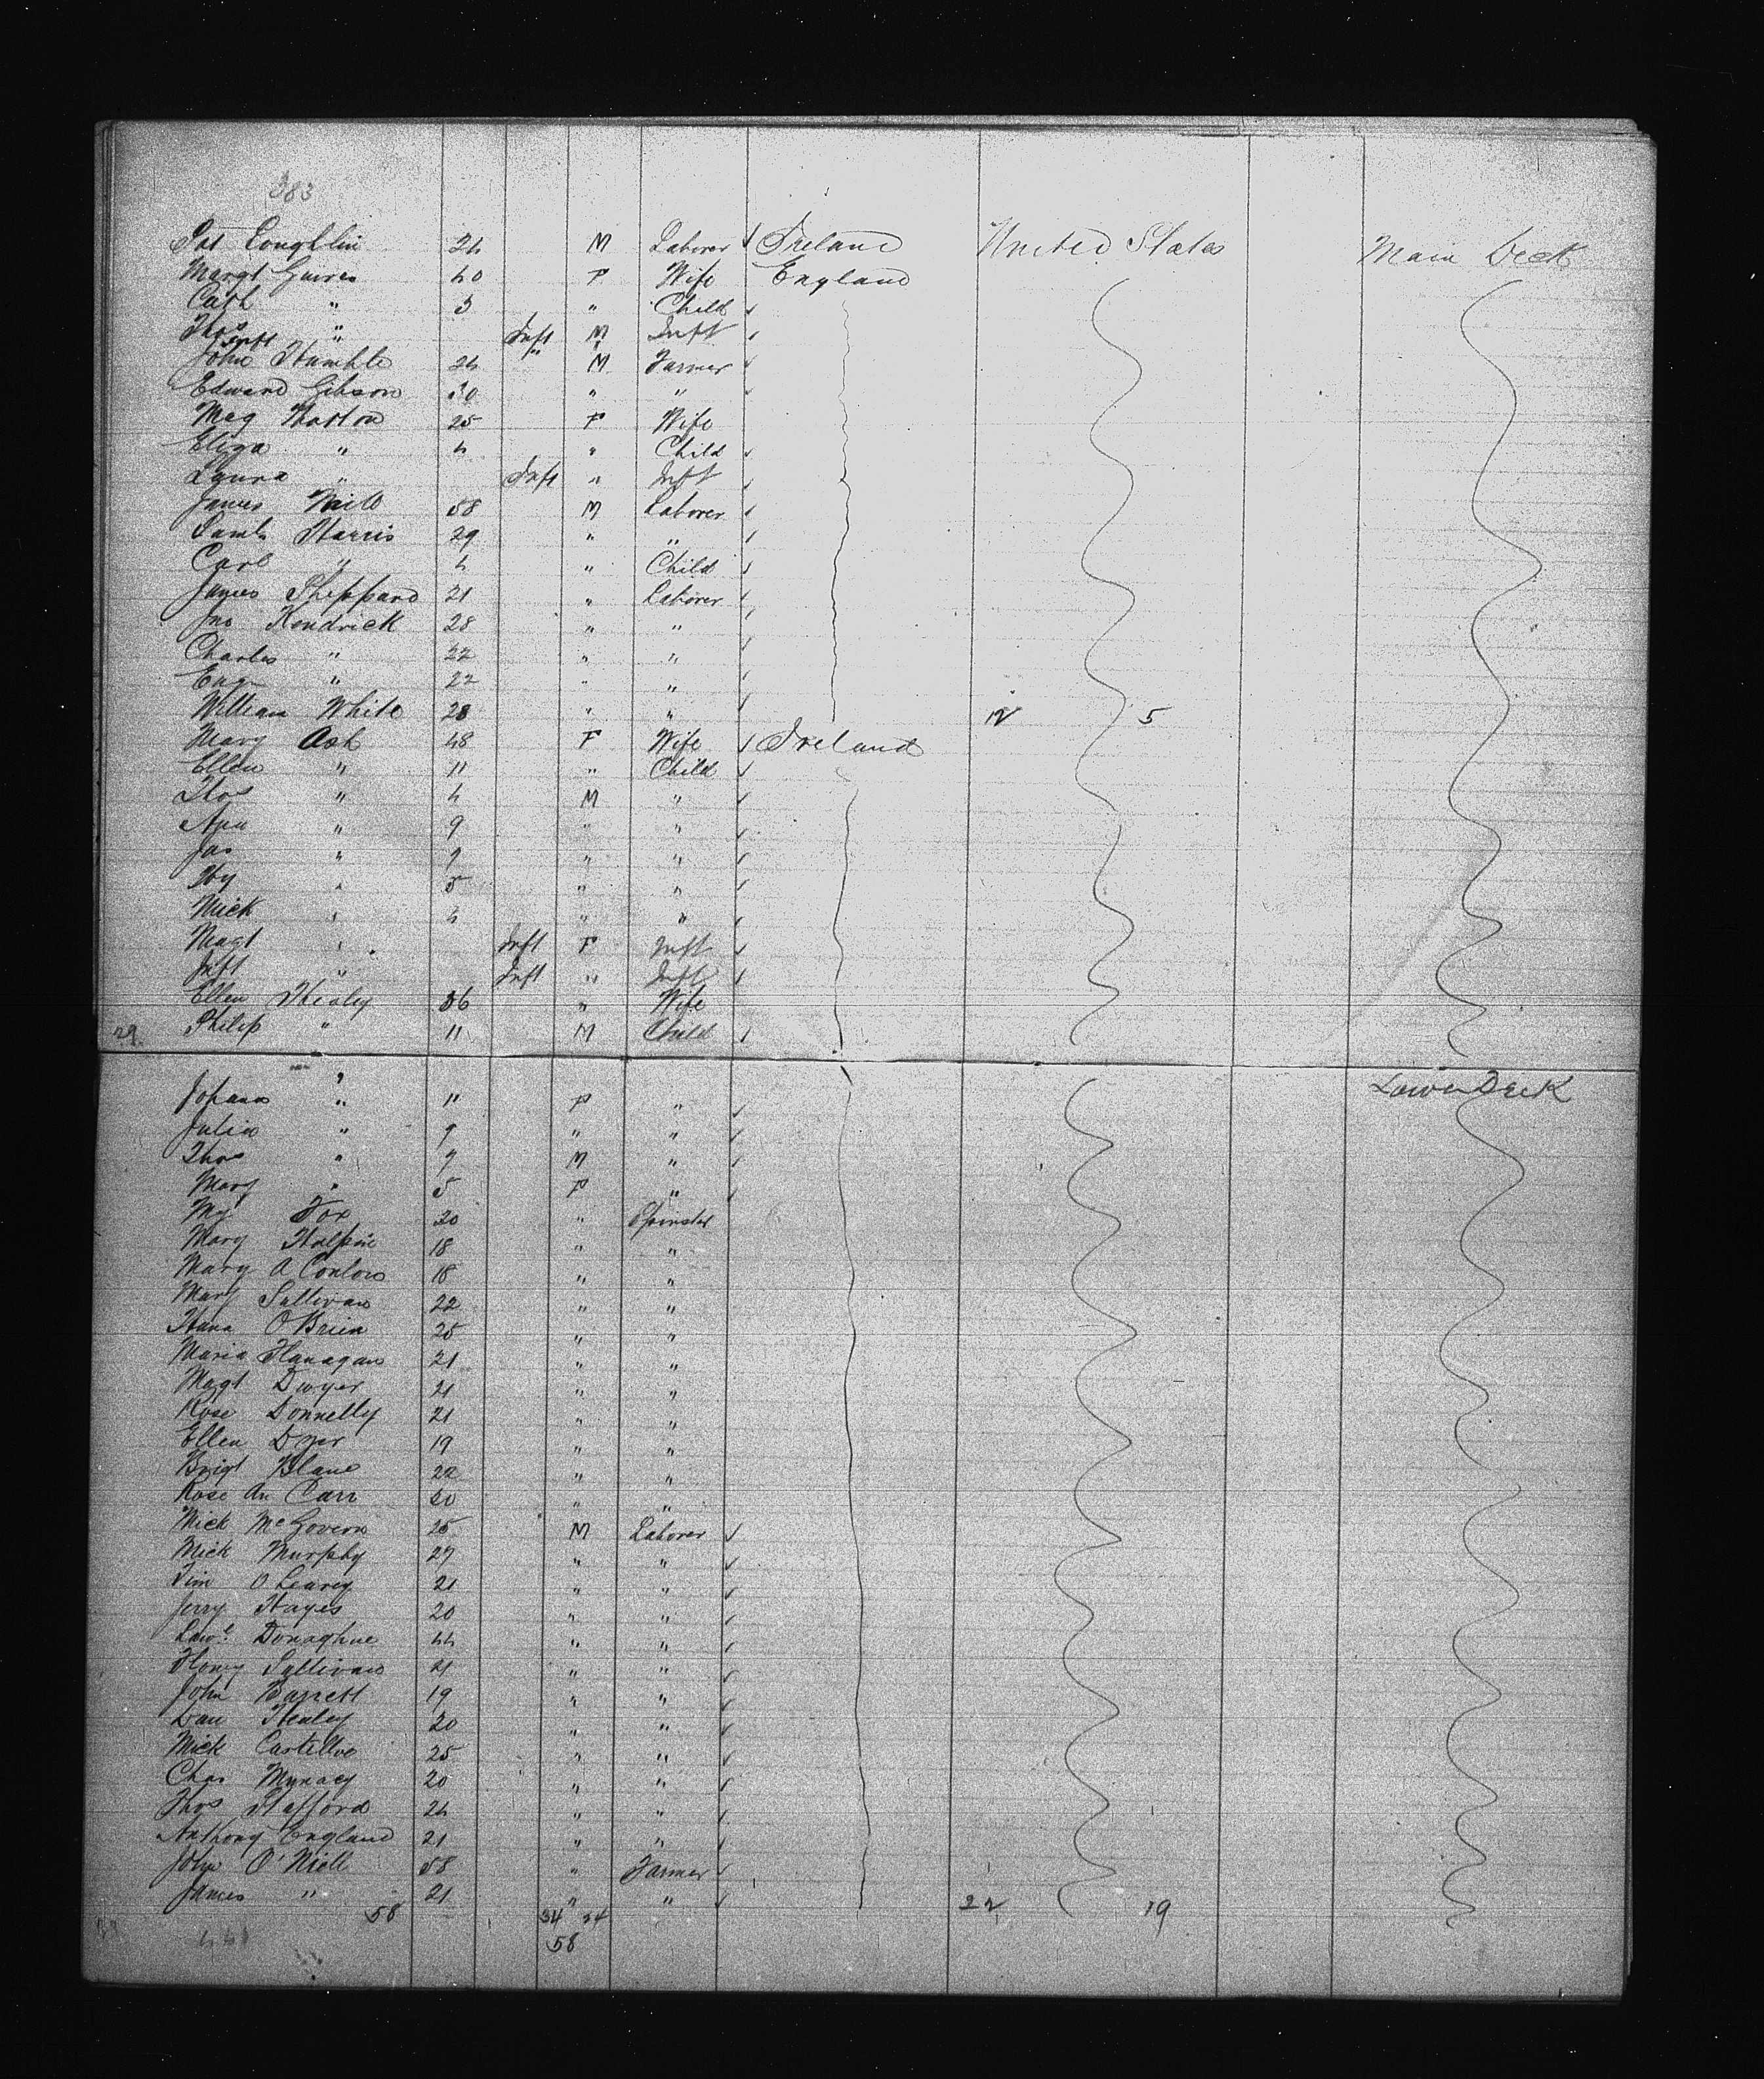 383
Pat Coughlin 24 M Laborer Ireland United States Main Deck
Margt 40 F Wife England
Cath " 3 " Child
Thos " Inft M Inft
Inft " "
John Humble 24 M Farmer
Edward Gibson 30 " "
Meg 25 F Wife
Eliza " 4 " Child
Laura " Inft " Inft
James 58 M Laborer
Saml Harris 29 " "
Carl " 4 " Child
James Sheppard 21 " Laborer
Jno Kendrick 28 " "
Charles " 22 " "
" 22 " "
William White 28 " " 12 5
Mary Ash 48 F Wife Ireland
Ellen " 11 " Child
Thos " 4 M "
" 9 " "
Jas " 9 " "
Hy " 5 " "
Mick " 4 " "
Magt " Inft F Inft
Inft " Inft " Inft
Ellen Healy 36 " Wife
29 Philip " 11 M Child
Lower Deck
Johana " 11 F "
Julia " 9 " "
Thos " 9 M "
Mary " 5 F "
My Fox 20 " Spinster
Mary Halpin 18 " "
Mary A Conlon 18 " "
Mary Sullivan 22 " "
Hana O'Brien 25 " "
Maria Flanagan 21 " "
Magt Dwyer 21 " "
Rose Donnelly 21 " "
Ellen Dyer 19 " "
Brigt Blane 22 " "
Rose An Carr 20 " "
Mick McGovern 25 M Laborer
Mick Murphy 27 " "
Tim O Leary 21 " "
Jerry Hayes 20 " "
Lawe Donaghue 44 " "
Sullivan 21 " "
John Barrett 19 " "
Dan Healey 20 " "
Mick Castelloe 25 " "
Chas 20 " "
Thos Stafford 24 " "
Anthony England 21 " "
John O'Niell 58 " Farmer
James " 21 " " 22 19
58 34 24
58